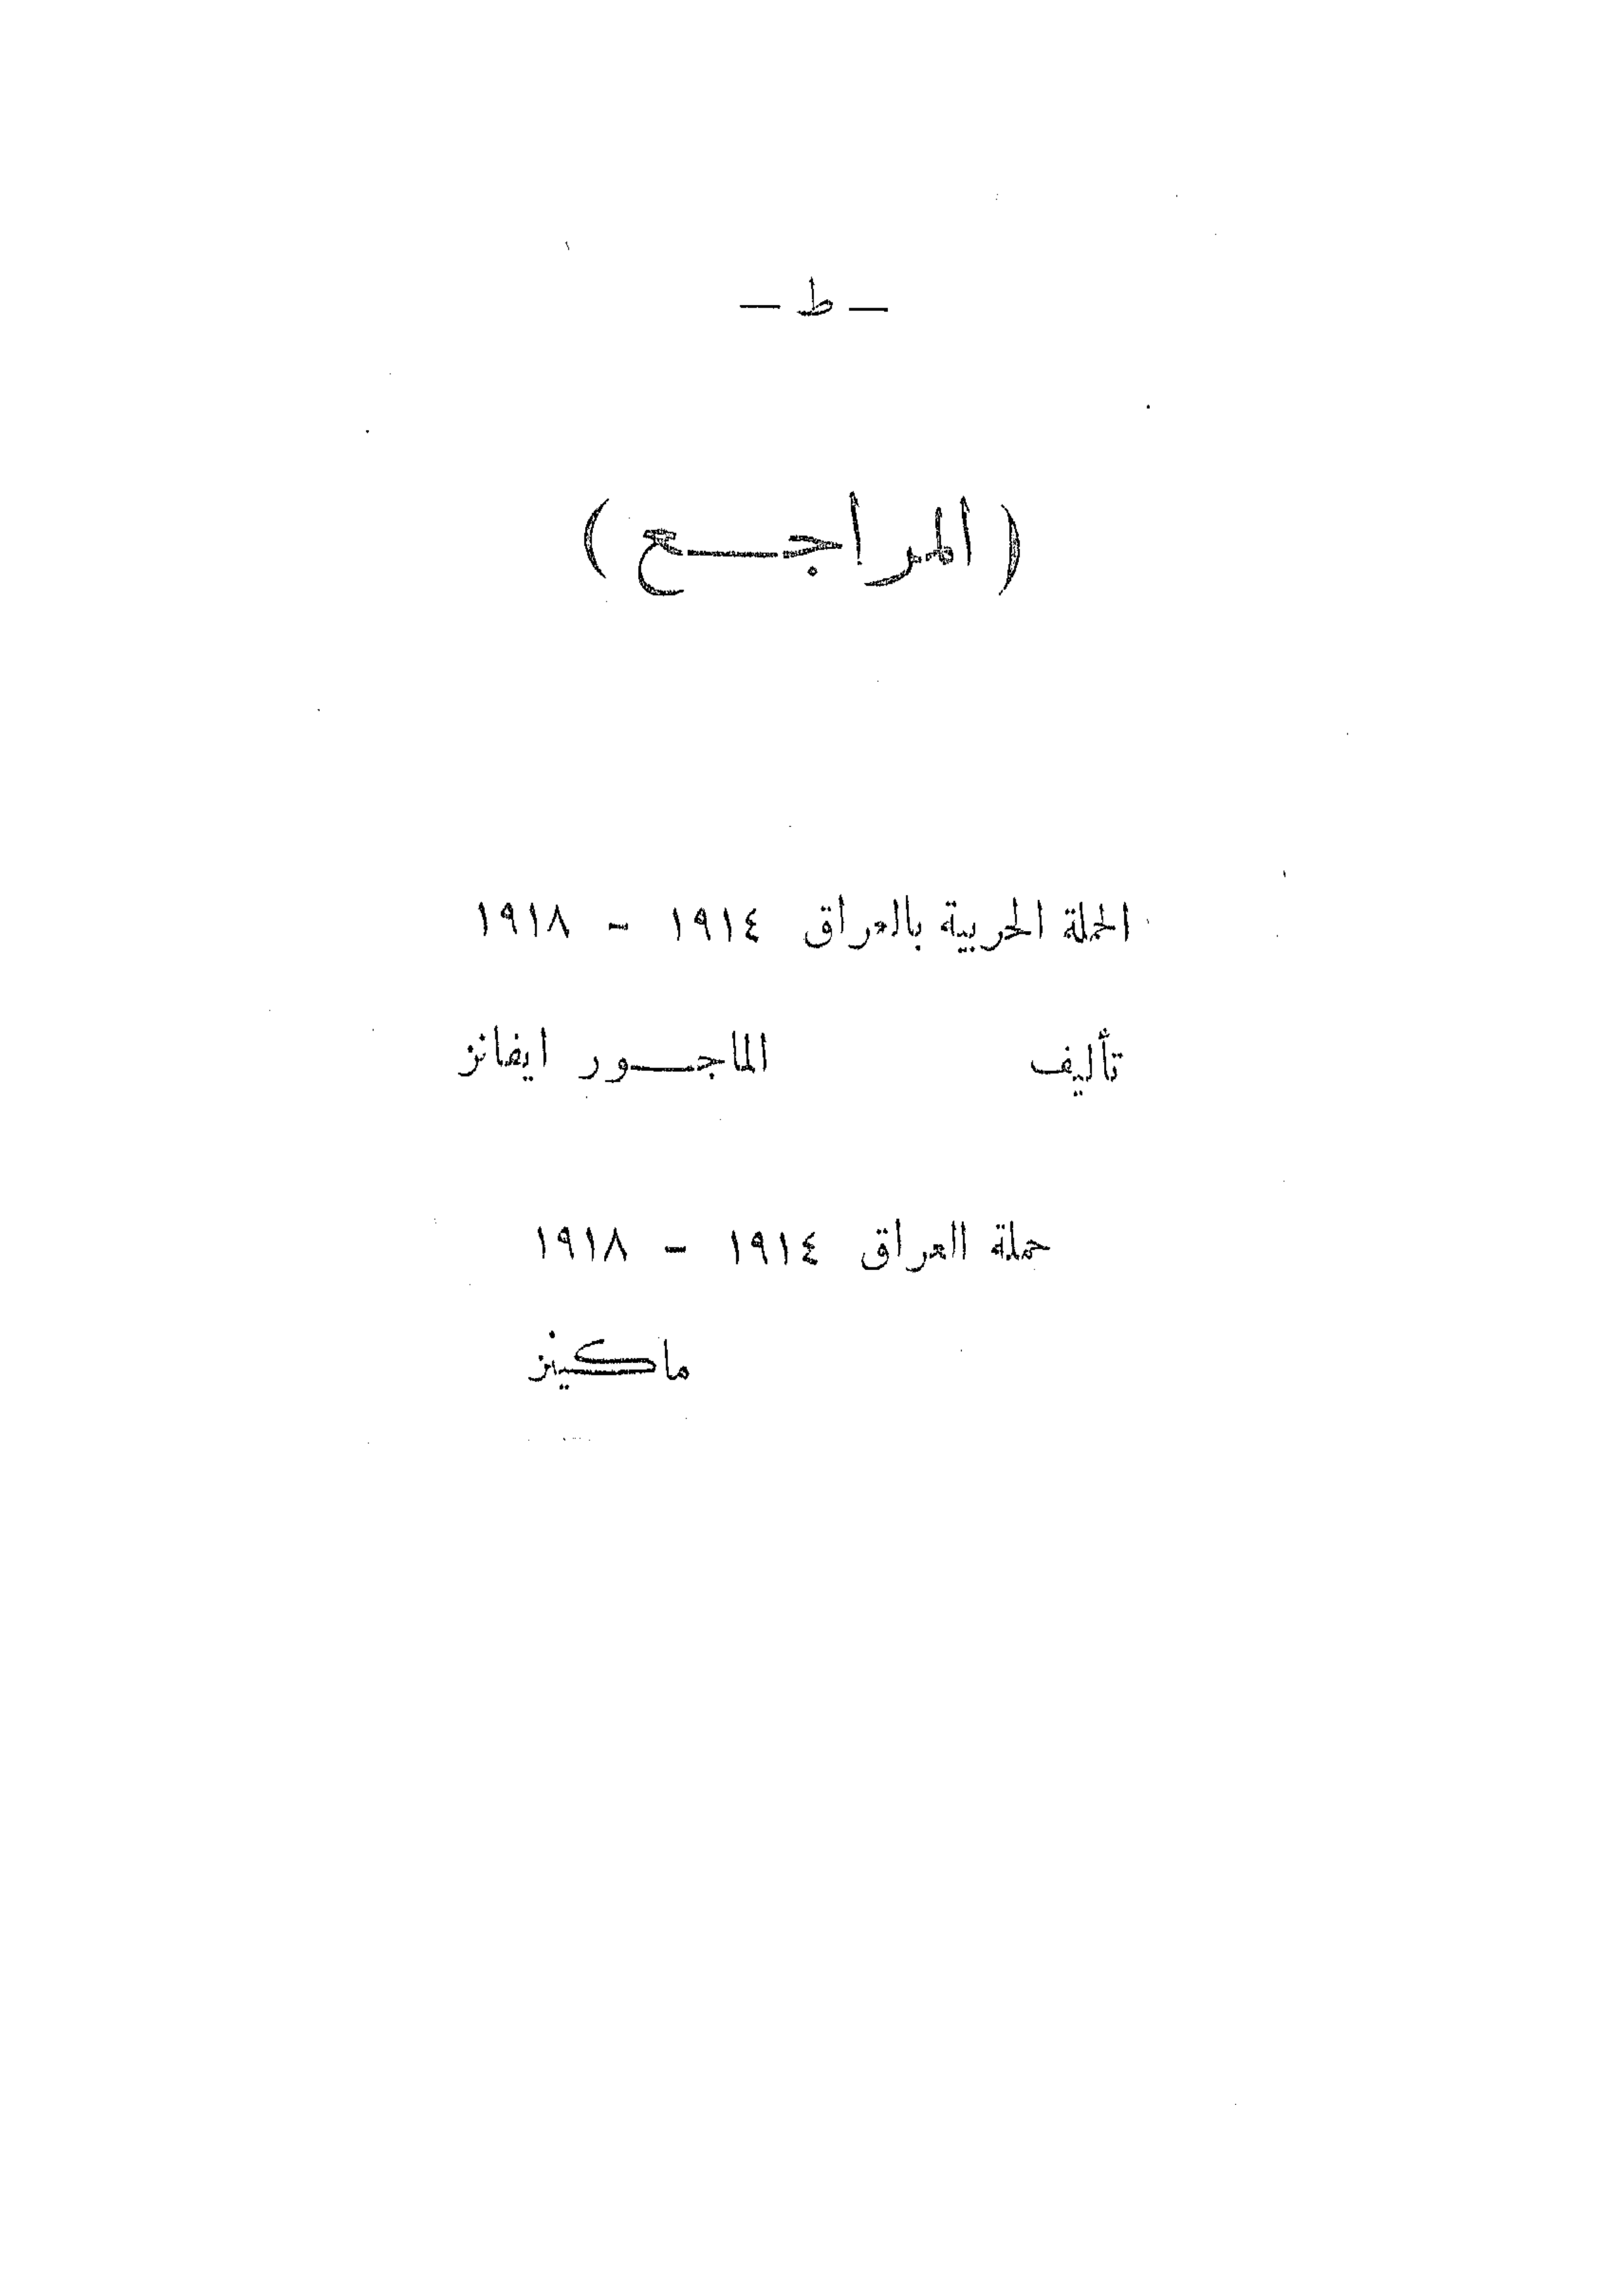 — ط —
( المراجـــع )
الحملة الحربية بالعراق ١٩١٤ - ١٩١٨
تأليف الماجـــور ايفانز
حملة العراق ١٩١٤ - ١٩١٨
ماكينز